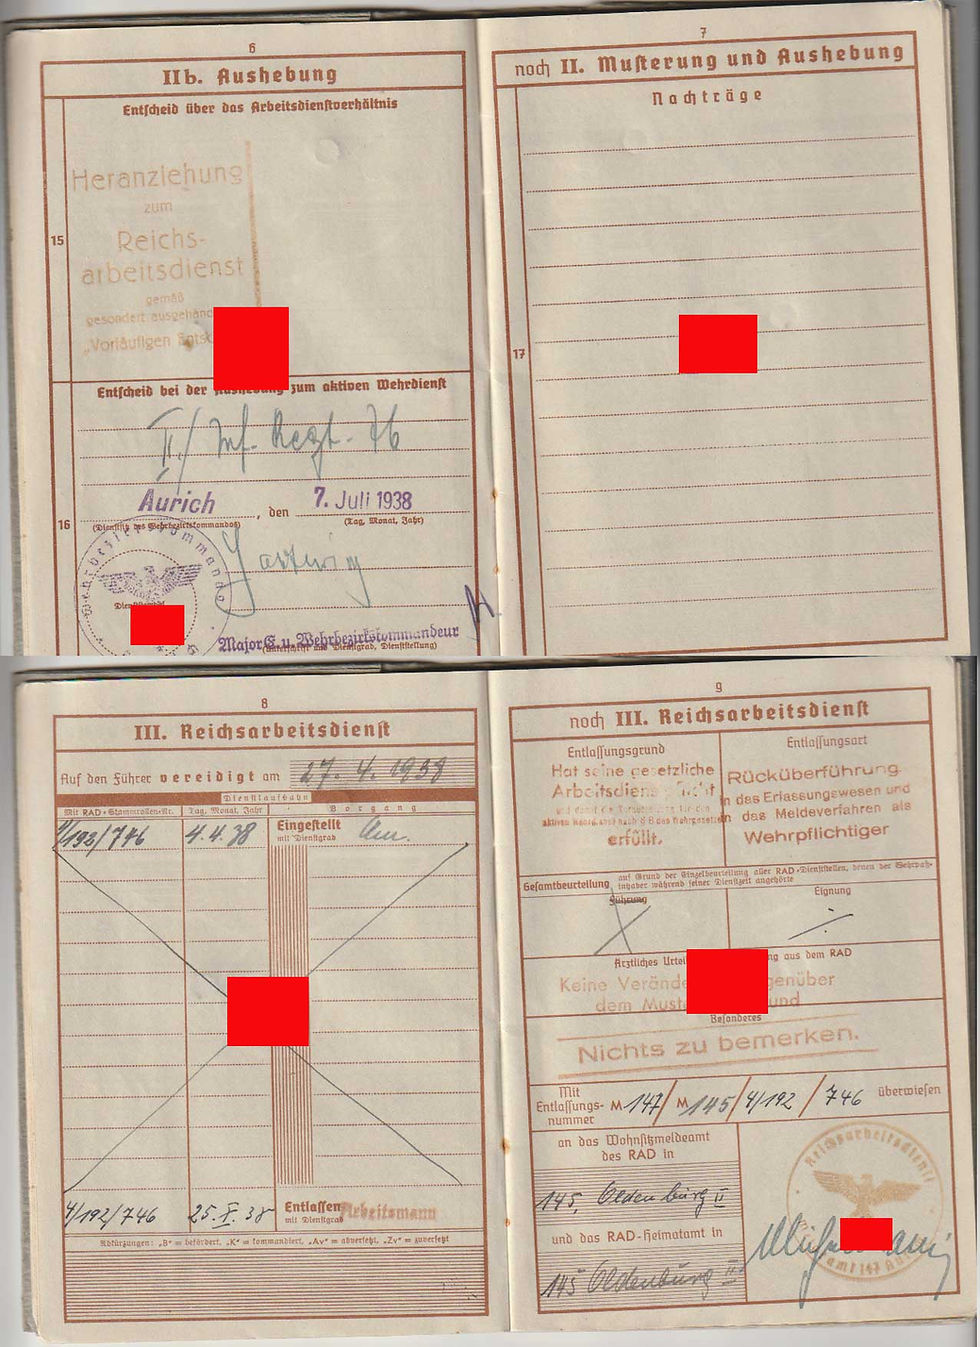 6
IIb. Aushebung
Entscheid über das Arbeitsdienstverhältnis
Heranziehung
zum
Reichs-
arbeitsdienst
gemäß
gesondert
"Vorläufigen
15
Entscheid bei der Aushebung zum aktiven Wehrdienst
II./ Inf. Regt. 76
Aurich, den 7. Juli 1938
(Dienstsitz des Wehrbezirkskommandos) (Tag, Monat, Jahr)
16
Wehrbezirkskommando
Hartwig
Major E. u. Wehrbezirkskommandeur
(Unterschrift und Dienstgrad, Dienststellung)
7
noch II. Musterung und Aushebung
Nachträge
17
8
III. Reichsarbeitsdienst
Auf den Führer vereidigt am 27. 4. 1938
Dienstlaufbahn
Mit RAD-Stammrollen-Nr. Tag, Monat, Jahr Vorgang
4/192/746 4.4.38 Eingestellt
mit Dienstgrad
4/192/746 25.X.38 Entlassen Arbeitsmann
mit Dienstgrad
Abkürzungen: „B“ = befördert, „K“ = kommandiert, „Av“ = abversetzt, „Zv“ = zuversetzt
9
noch III. Reichsarbeitsdienst
Entlassungsgrund
Hat seine gesetzliche
Arbeitsdienstpflicht
erfüllt.
Entlassungsart
Rücküberführung
in das Erfassungswesen und
in das Meldeverfahren als
Wehrpflichtiger
Gesamtbeurteilung auf Grund der Einzelbeurteilung aller RAD-Dienststellen, denen der Wehrpaß-
inhaber während seiner Dienstzeit angehörte
Führung Eignung
Ärztliches aus dem RAD
Keine
dem
Besonderes
Nichts zu bemerken.
Mit
Entlassungs-
nummer
M 147/ M 145/4/192 / 746 überwiesen
an das Wohnsitzmeldeamt
des RAD in
145, Oldenburg II
und das RAD-Heimatamt in
145 Oldenburg II
Reichsarbeitsdienst